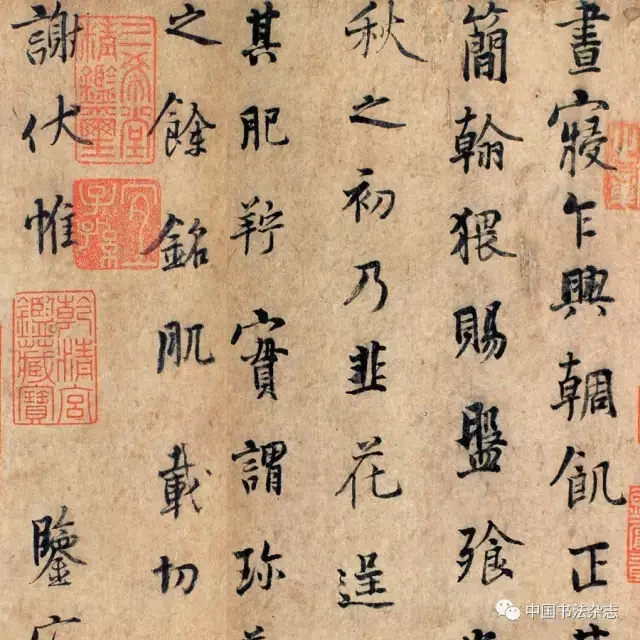 晝寢乍興輖飢正
簡翰猥賜盤飧
秋之初乃韭花逞
其肥羜實謂珍
之餘銘肌載切
謝伏惟鑒
三希堂精鑑璽
宜子孫
乾清宮鑑藏寶
中国书法杂志